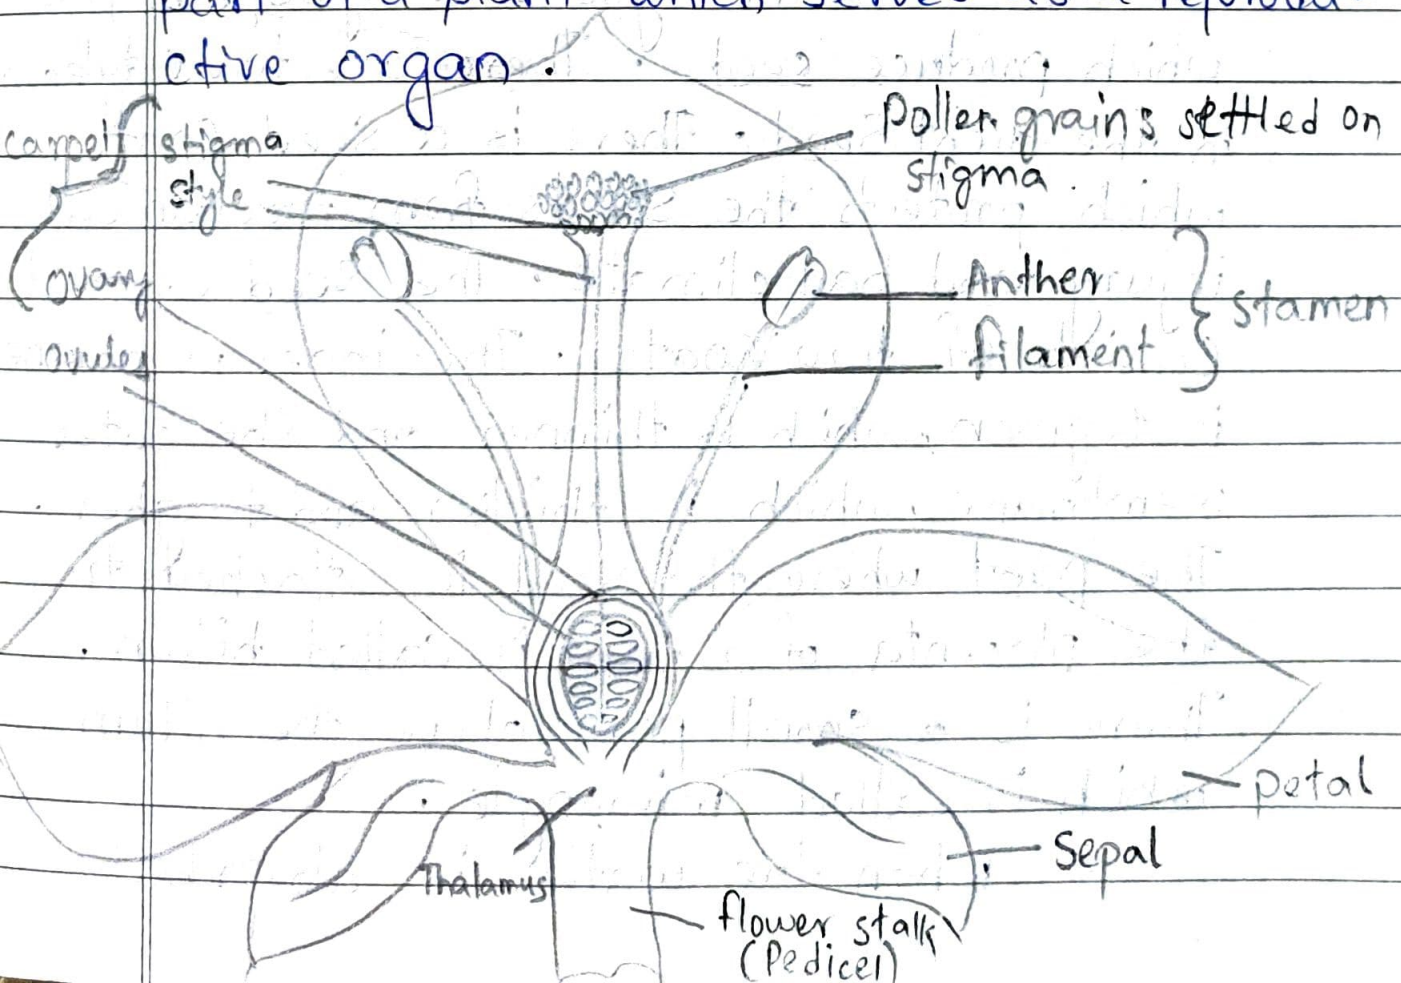 part of a plant which serves
ctive organ.
carpel
stigma
style
ovary
ovules
Pollen grains settled on
stigma.
Anther
filament
stamen
petal
Sepal
Thalamus
flower stalk
(Pedicel)